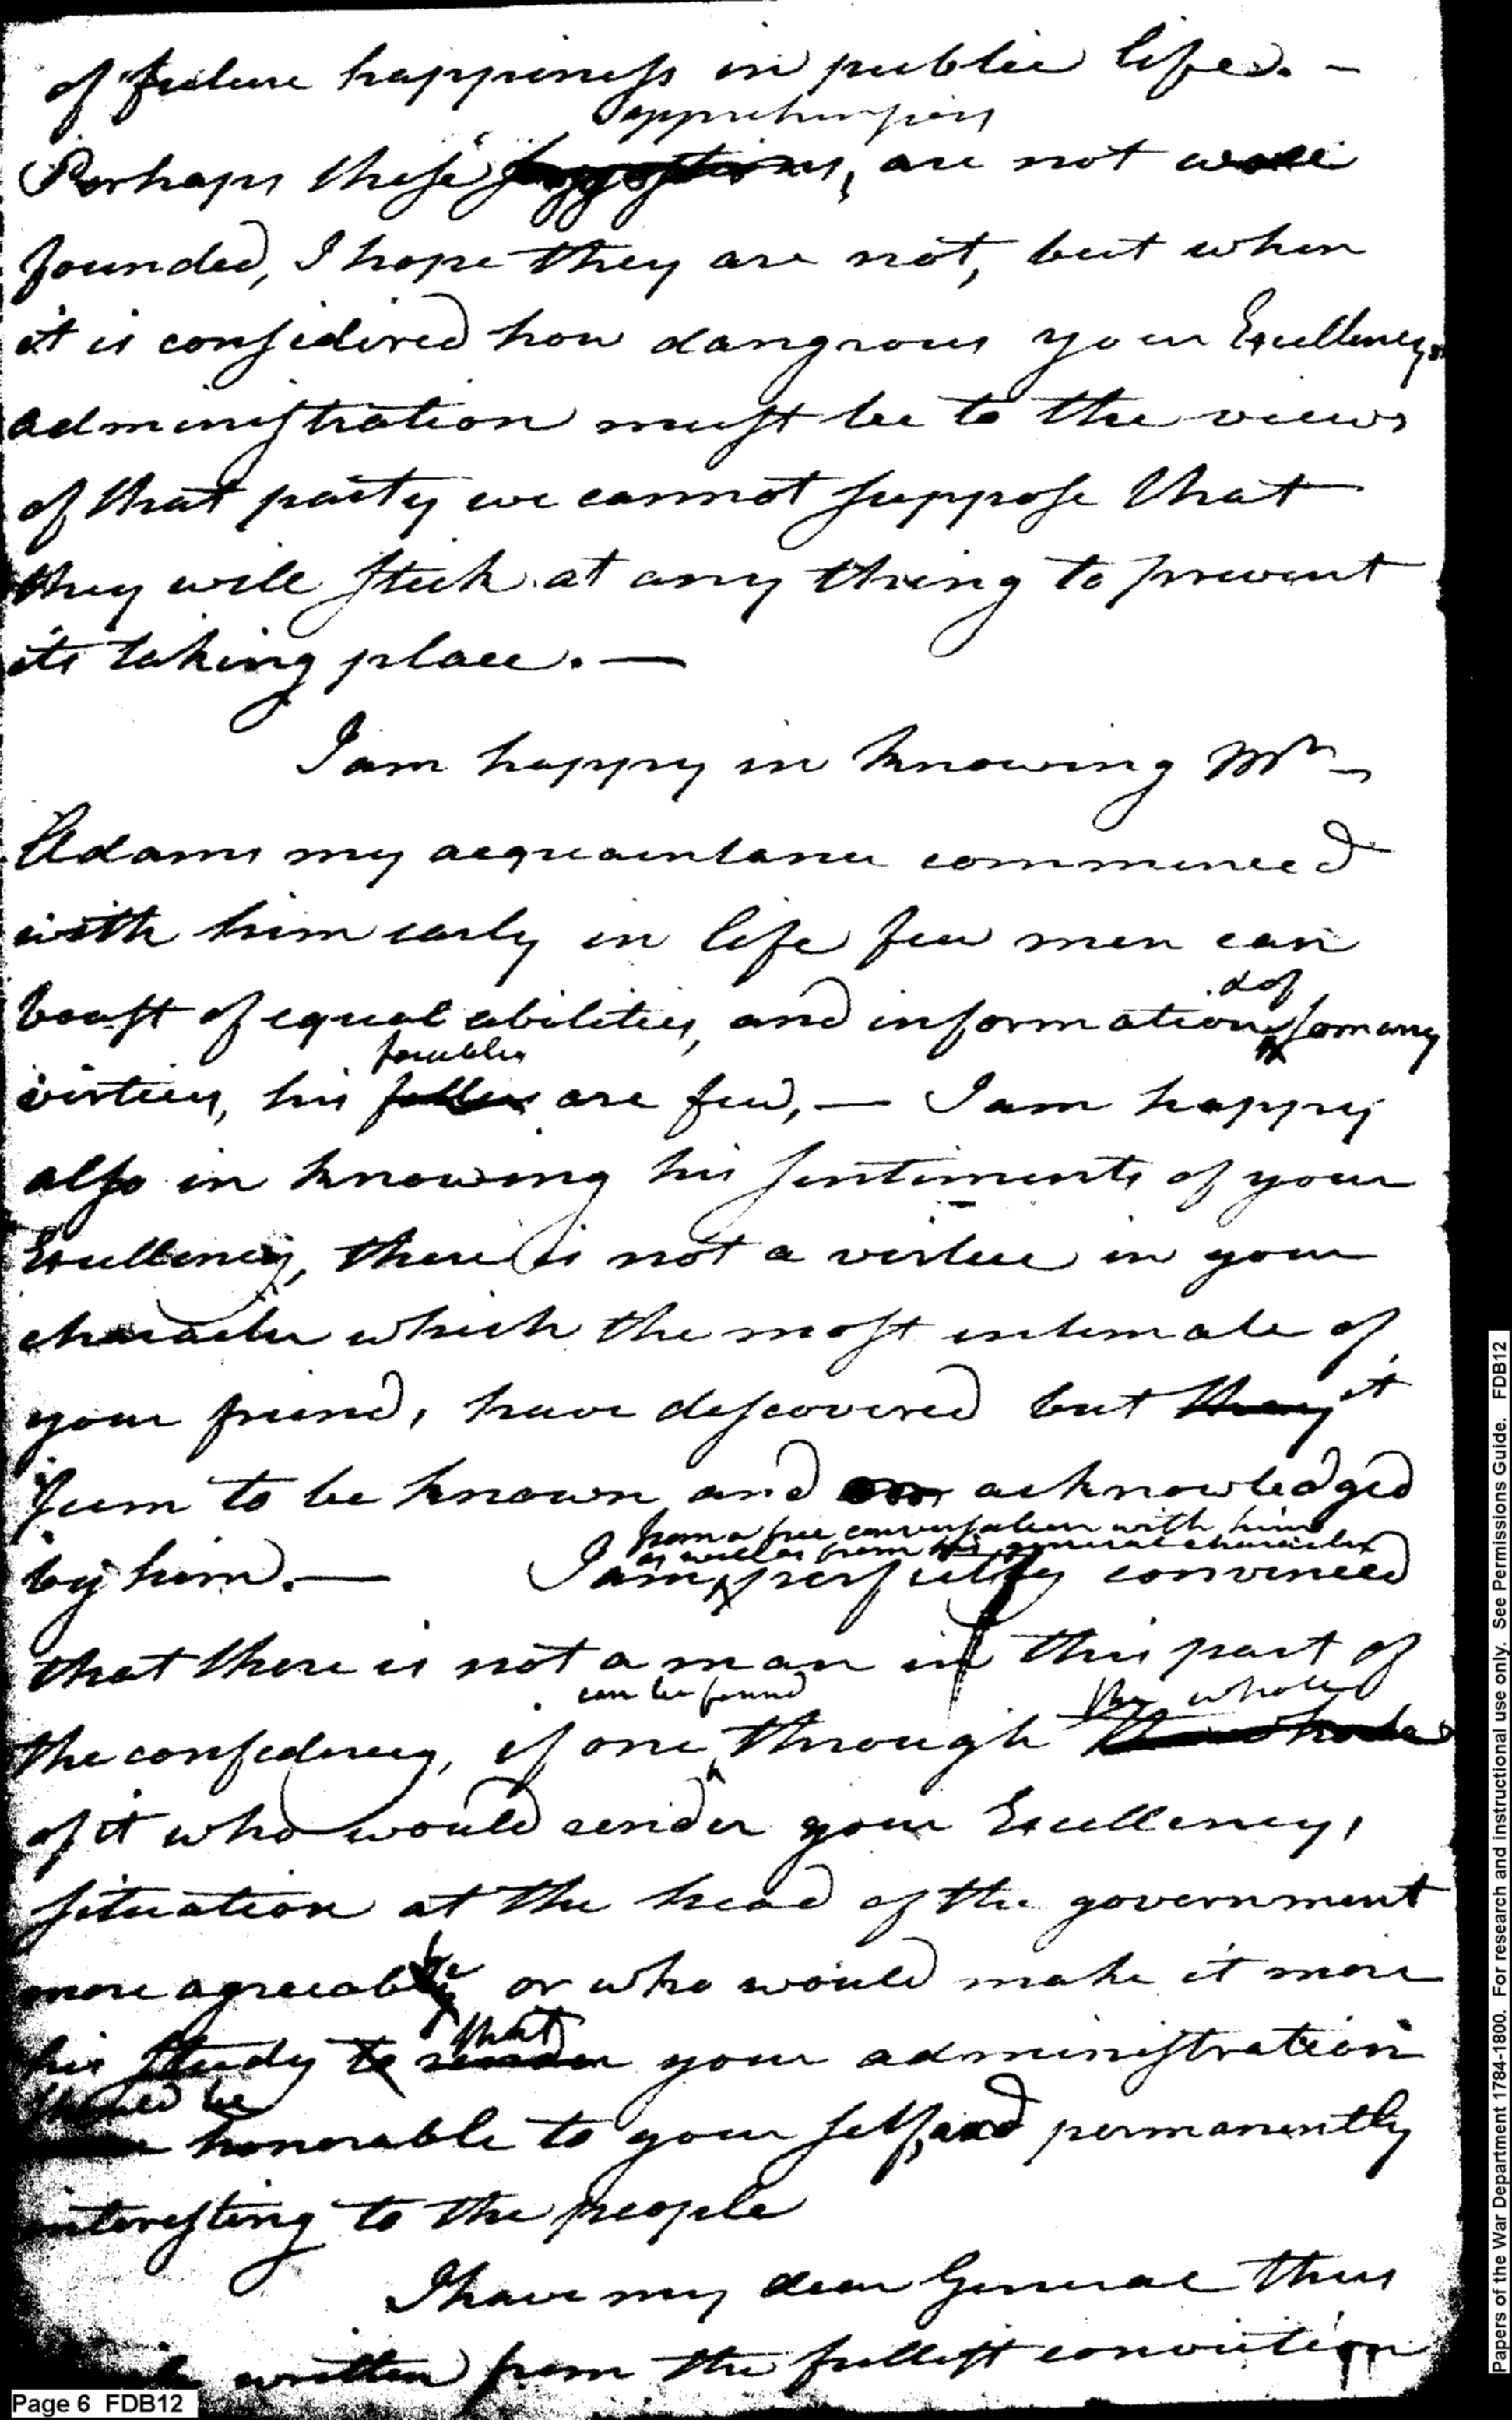 of future happiness in public life. –
apprehensions
Perhaps these suggestions, are not well
founded, I hope they are not, but when
it is considered how dangrous your Excellencys
administration must be to the views
of that party we cannot suppose that
they will stick at any thing to prevent
its taking place. —
I am happy in knowing Mr
Adams my acquaintance commenced
with him early in life few men can
& of
boast of equal abilities, and information so many
foibles
virtues, his are few, — I am happy
also in knowing his sentiments of your
Excellency, there is not a virtue in your
character which the most intimate of
your friends have discovered but they it
seem to be known and acknowledged
from a free conversation with him
as well as from his general character
by him. — I am perfectly convinced
that there is not a man in this part of
can be found the whole
the confederacy, if one through the whole
of it who would render your Excellency,
situation at the head of the government
more agreeable or who would make it more
that
his study to render your administration
should be
honorable to your self, and permanently
interesting to the people
I have my dear General thus
written from the fullest conviction
Page 6 FDB12
Papers of the War Department 1784-1800. For research and instructional use only. See Permissions Guide. FDB12